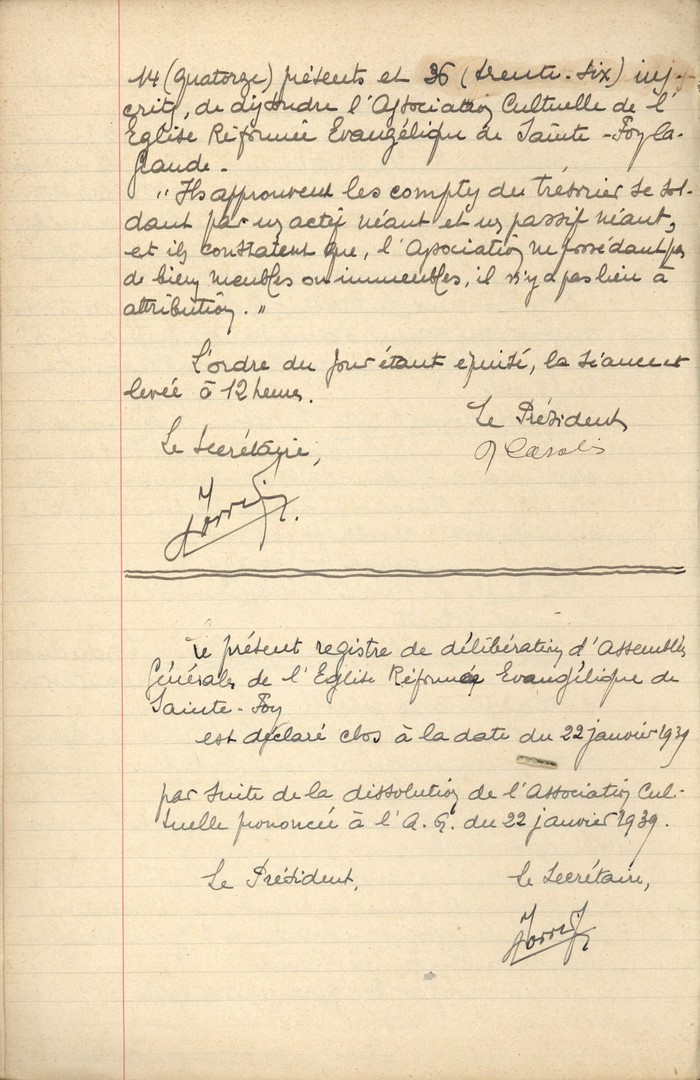 14 (quatorze) présents et 36 (trente-six) ins-
crits, de dissoudre l'Association Cultuelle de l'
Eglise Réformée Evangélique de Sainte-Foy la-
Grande.
"Ils approuvent les comptes du trésorier se sol-
dant par un actif néant et un passif néant,
et ils constatent que, l'Association ne possédant pas
de biens meubles ou immeubles, il n'y a pas lieu à
attribution."
L'ordre du jour étant épuisé, la séance est
levée à 12 heures.
Le Président
Le Secrétaire,
Le présent registre de délibération d'Assemblées
Générales de l'Eglise Réformée Evangélique de
Sainte-Foy
est déclaré clos à la date du 22 janvier 1939
par suite de la dissolution de l'Association Cul-
tuelle prononcée à l'A.G. du 22 janvier 1939.
Le Président, Le Secrétaire,